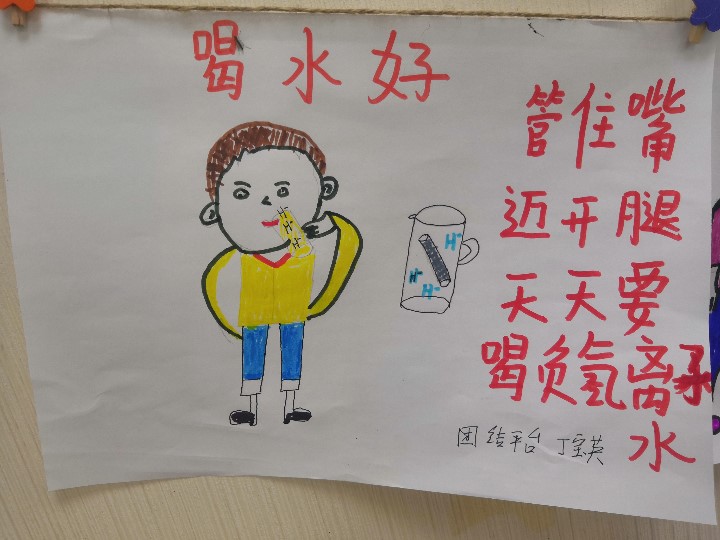 喝水好
管住嘴
迈开腿
天天要
喝负氢离子
水
H⁻
H⁻
H⁻
H⁻
H⁻
H⁻
团结平台 丁宝英